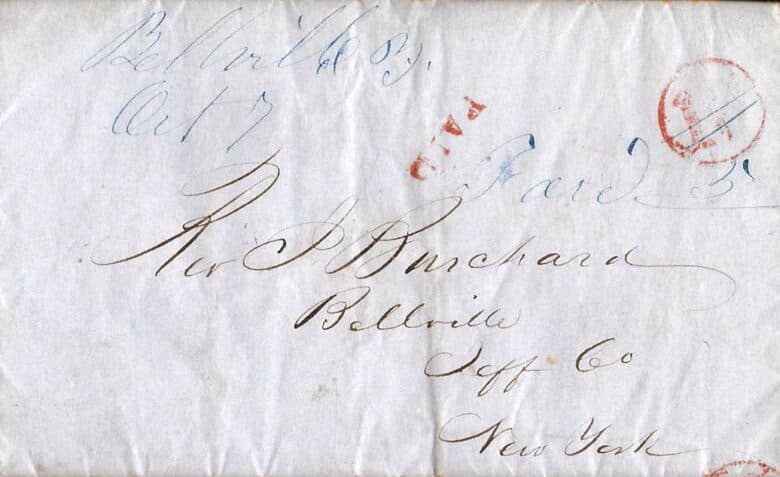 Bellville N.Y.
Oct 7
PAID
Paid 5
Rev J Burchard
Bellville
Jeff Co
New York